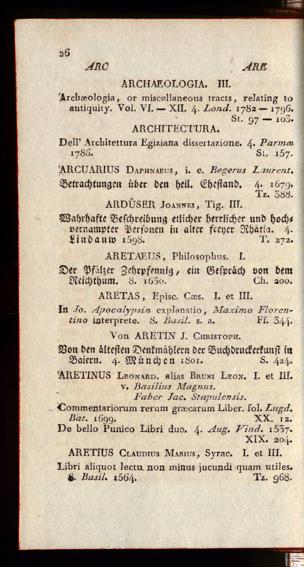 26
ARC ARE
ARCHAEOLOGIA. III.
Archæologia, or miscellaneous tracts, relating to
antiquity. Vol. VI. — XII. 4. Lond. 1782 — 1796.
St. 97 — 103.
ARCHITECTURA.
Dell' Architettura Egiziana dissertazione. 4. Parmæ
1786. St. 157.
ARCUARIUS DAPHNAEUS, i. e. Begerus Laurent.
Betrachtungen über den heil. Ehestand. 4. 1679.
Tz. 388.
ARDÜSER JOANNES, Tig. III.
Wahrhafte Beschreibung etlicher herrlicher und hoch⸗
vernampter Personen in alter freyer Rhätia. 4.
Lindauw 1598. T. 272.
ARETAEUS, Philosophus. I.
Der Pfälzer Zehrpfennig, ein Gespräch von dem
Reichthum. 8. 1630. Ch. 200.
ARETAS, Episc. Cæs. I. et III.
In Jo. Apocalypsin explanatio, Maximo Floren-
tino interprete. 8. Basil. s. a. Ff. 344.
Von ARETIN J. CHRISTOPH.
Von den ältesten Denkmählern der Buchdruckerkunst in
Baiern. 4. München 1801. S. 424.
ARETINUS LEONARD. alias BRUNI LEON. I. et III.
v. Basilius Magnus.
Faber Jac. Stapulensis.
Commentariorum rerum græcarum Liber. fol. Lugd.
Bat. 1699. XX. 12.
De bello Punico Libri duo. 4. Aug. Vind. 1537.
XIX. 204.
ARETIUS CLAUDIUS MARIUS, Syrac. I. et III.
Libri aliquot lectu non minus jucundi quam utiles.
8. Basil. 1564. Tz. 968.